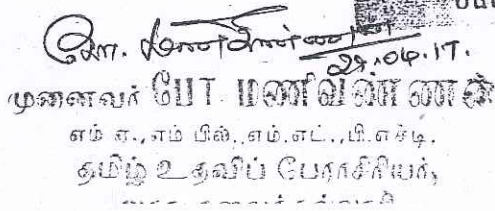 போ. மணிவண்ணன்
28.04.17.
முனைவர் போ மணிவண்ணன்
எம் ஏ.,எம் பில்.,எம்.எட்.,பி.எச்டி.
தமிழ் உதவிப் பேராசிரியர்,